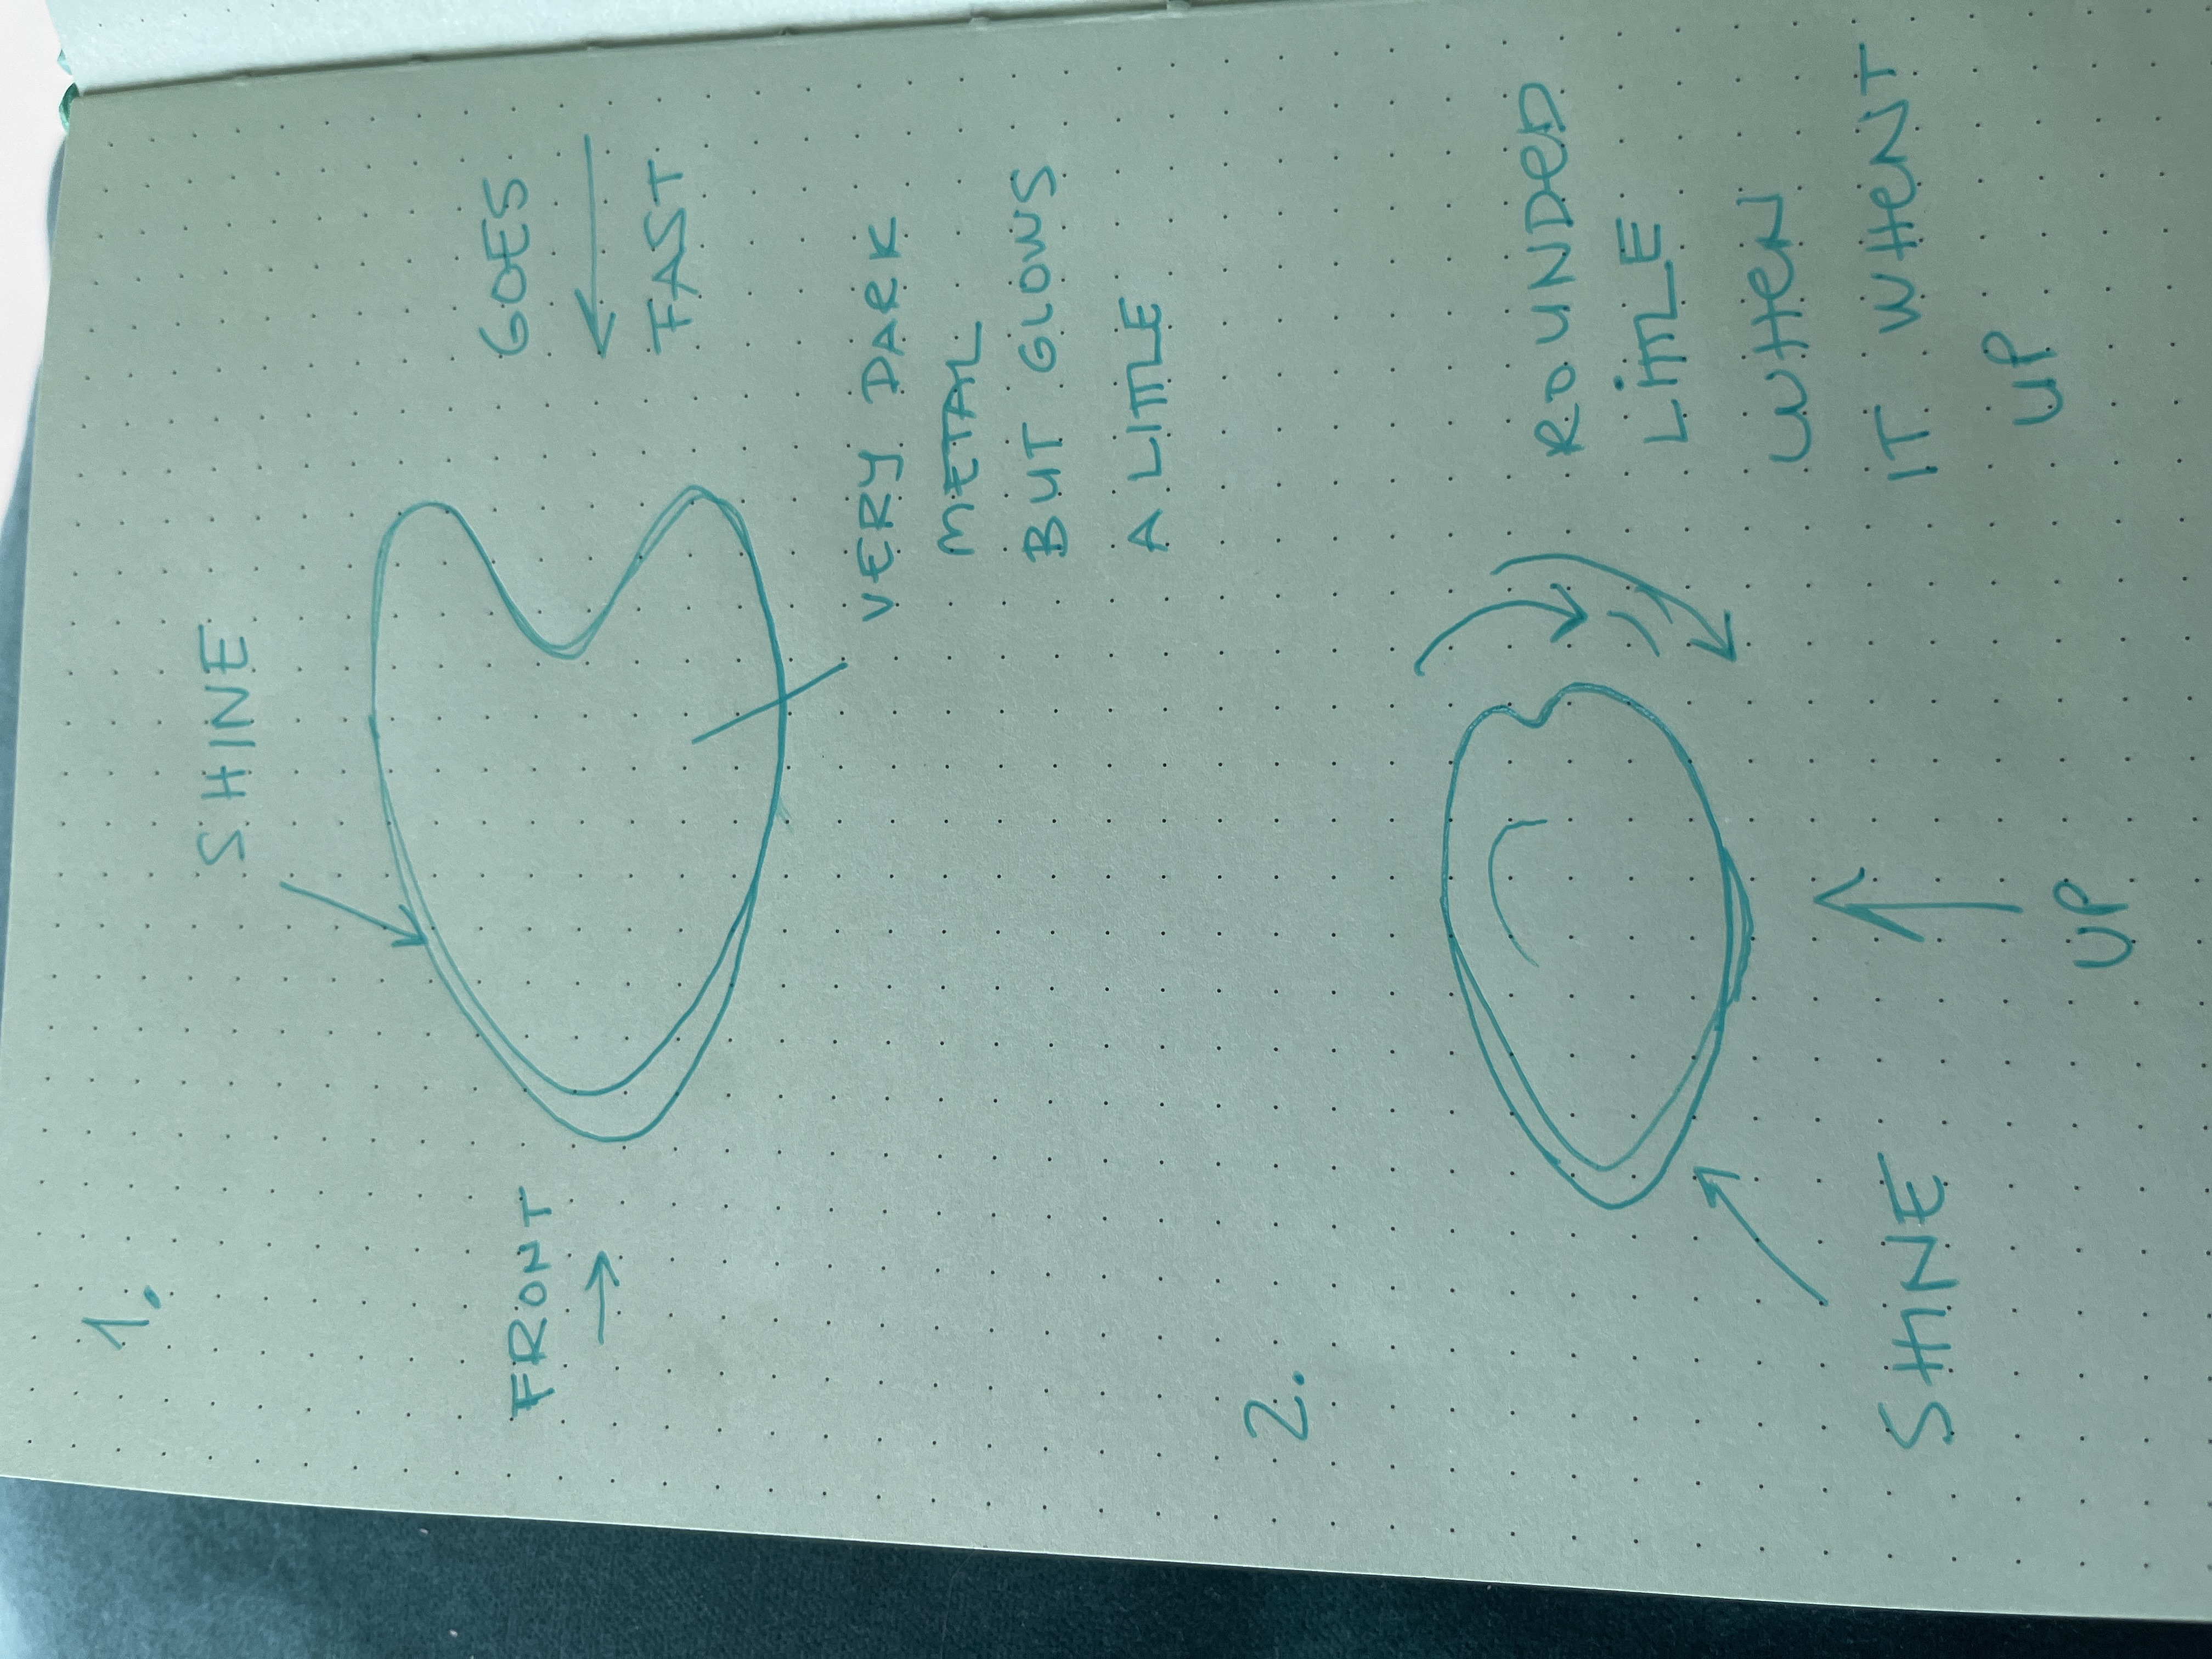 1.
SHINE
FRONT
GOES
FAST
VERY DARK
METAL
BUT GLOWS
A LITTLE
2.
ROUNDeD
LiTTLE
WHeN
IT WHeNT
UP
SHINE
UP